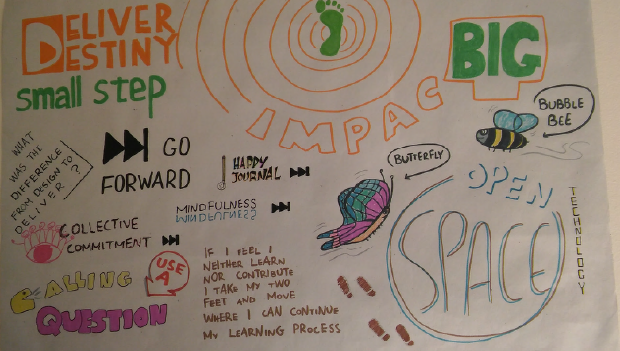 DELIVER
DESTINY
small step
IMPAC
BIG
BUBBLE
BEE
WHAT
WAS THE
DIFFERENCE
FROM DESIGN TO
DELIVER ?
GO
FORWARD
HAPPY
JOURNAL
MINDFULNESS
MINDFULNESS
BUTTERFLY
OPEN
SPACE
TECHNOLOGY
COLLECTIVE
COMMITMENT
USE
A
CALLING
QUESTION
IF I FEEL I
NEITHER LEARN
NOR CONTRIBUTE
I TAKE MY TWO
FEET AND MOVE
WHERE I CAN CONTINUE
MY LEARNING PROCESS